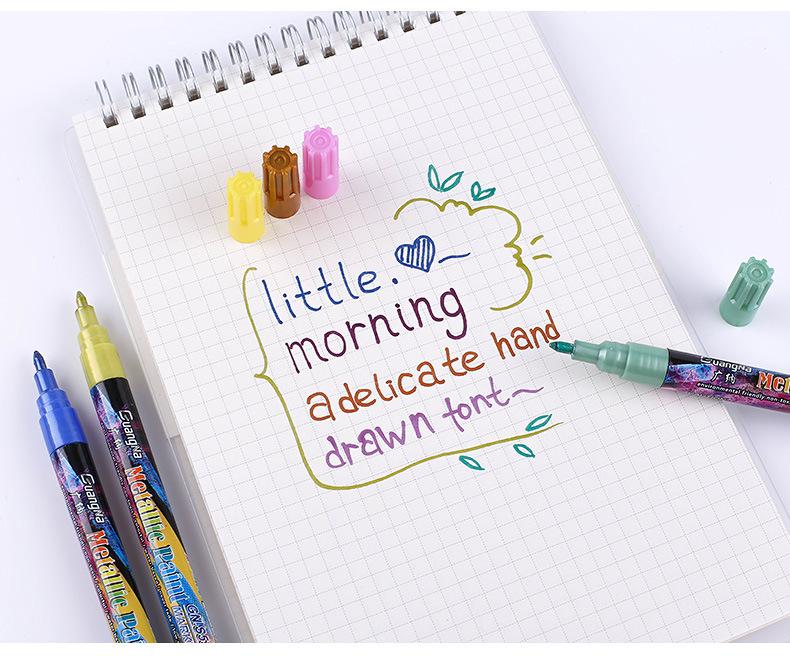 little.
morning
a delicate hand
drawn font~
GuangNa
广纳
environmental friendly non-tox
GuangNa
广纳
Metallic Paint
GuangNa
Metallic Paint